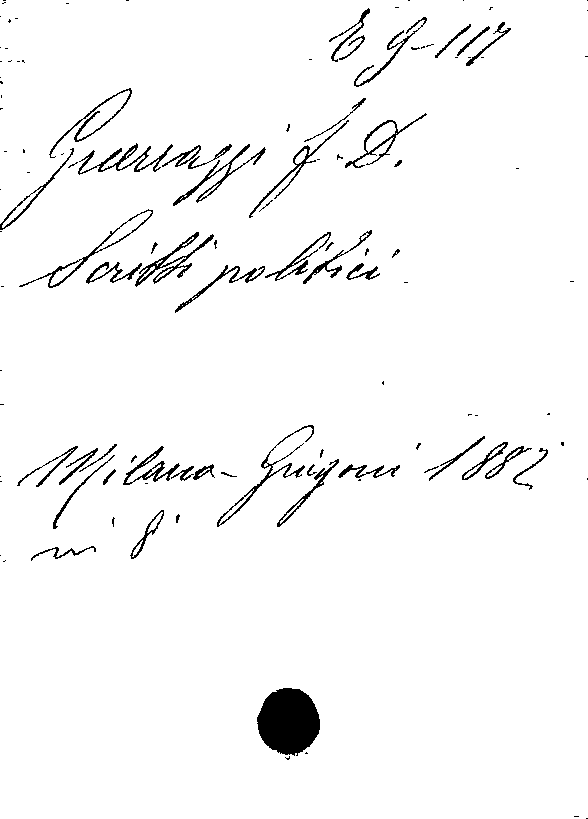 E 9-117
Guerrazzi F. D.
Scritti politici
Milano - Guigoni 1882
in 8°